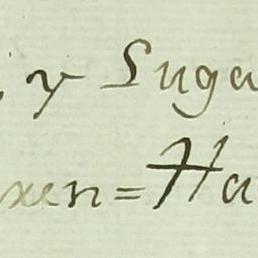 y Luga
xen=Ha